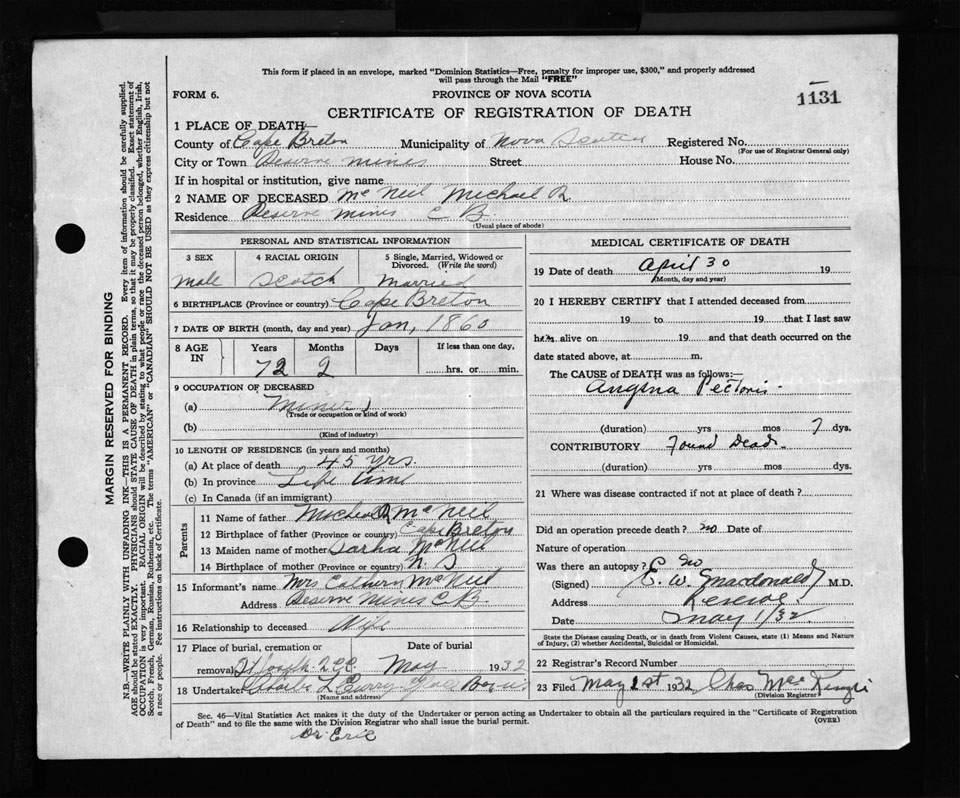 This form if placed in an envelope, marked "Dominion Statistics—Free, penalty for improper use, $300," and properly addressed
will pass through the Mail "FREE"
FORM 6.
PROVINCE OF NOVA SCOTIA
1131
CERTIFICATE OF REGISTRATION OF DEATH
1 PLACE OF DEATH—
County of Cape Breton Municipality of Nova Scotia Registered No.
(For use of Registrar General only)
City or Town Reserve Mines Street House No.
If in hospital or institution, give name
2 NAME OF DECEASED McNeil Michael R.
Residence Reserve Mines C B.
(Usual place of abode)
PERSONAL AND STATISTICAL INFORMATION
3 SEX 4 RACIAL ORIGIN 5 Single, Married, Widowed or Divorced. (Write the word)
male Scotch Married
6 BIRTHPLACE (Province or country) Cape Breton
7 DATE OF BIRTH (month, day and year) Jan, 1860
8 AGE IN Years Months Days If less than one day,
72 2 hrs. or min.
9 OCCUPATION OF DECEASED
(a) Miner
(Trade or occupation or kind of work)
(b)
(Kind of industry)
10 LENGTH OF RESIDENCE (in years and months)
(a) At place of death 45 yrs
(b) In province Life time
(c) In Canada (if an immigrant)
Parents
11 Name of father McNeil
12 Birthplace of father (Province or country) Cape Breton
13 Maiden name of mother Sarha McNeil
14 Birthplace of mother (Province or country) N. S
15 Informant's name Mrs Cathern McNeil
Address Reserve Mines C B.
16 Relationship to deceased Wife
17 Place of burial, cremation or Date of burial
removal St Joseph May 1932
18 Undertaker Curry Glace
(Name and address)
MEDICAL CERTIFICATE OF DEATH
19 Date of death April 30 19
(Month, day and year)
20 I HEREBY CERTIFY that I attended deceased from
19 to 19 that I last saw
him alive on 19 and that death occurred on the
date stated above, at m.
The CAUSE of DEATH was as follows:—
Angina Pectoris
(duration) yrs mos 7 dys.
CONTRIBUTORY Found Dead.
(duration) yrs. mos. dys.
21 Where was disease contracted if not at place of death?
Did an operation precede death? no Date of
Nature of operation
Was there an autopsy? no
(Signed) E. W. Macdonald M.D.
Address Reserve
Date May 1/32
State the Disease causing Death, or in death from Violent Causes, state (1) Means and Nature
of Injury, (2) whether Accidental, Suicidal or Homicidal.
22 Registrar's Record Number
23 Filed May 1st 1932 Chas
Division Registrar
Sec. 46—Vital Statistics Act makes it the duty of the Undertaker or person acting as Undertaker to obtain all the particulars required in the "Certificate of Registration
of Death" and to file the same with the Division Registrar who shall issue the burial permit.
(OVER)
Dr Eric
MARGIN RESERVED FOR BINDING
N.B.—WRITE PLAINLY WITH UNFADING INK—THIS IS A PERMANENT RECORD. Every item of information should be carefully supplied.
AGE should be stated EXACTLY. PHYSICIANS should STATE CAUSE OF DEATH in plain terms, so that it may be properly classified. Exact statement of
OCCUPATION is very important. RACIAL ORIGIN will be described by stating to what people or race the deceased person belonged, whether English, Irish,
Scotch, French, German, Russian, Ruthenian, etc. The terms "AMERICAN" or "CANADIAN" SHOULD NOT BE USED as they express citizenship but not
a race or people. Fee instructions on back of Certificate.